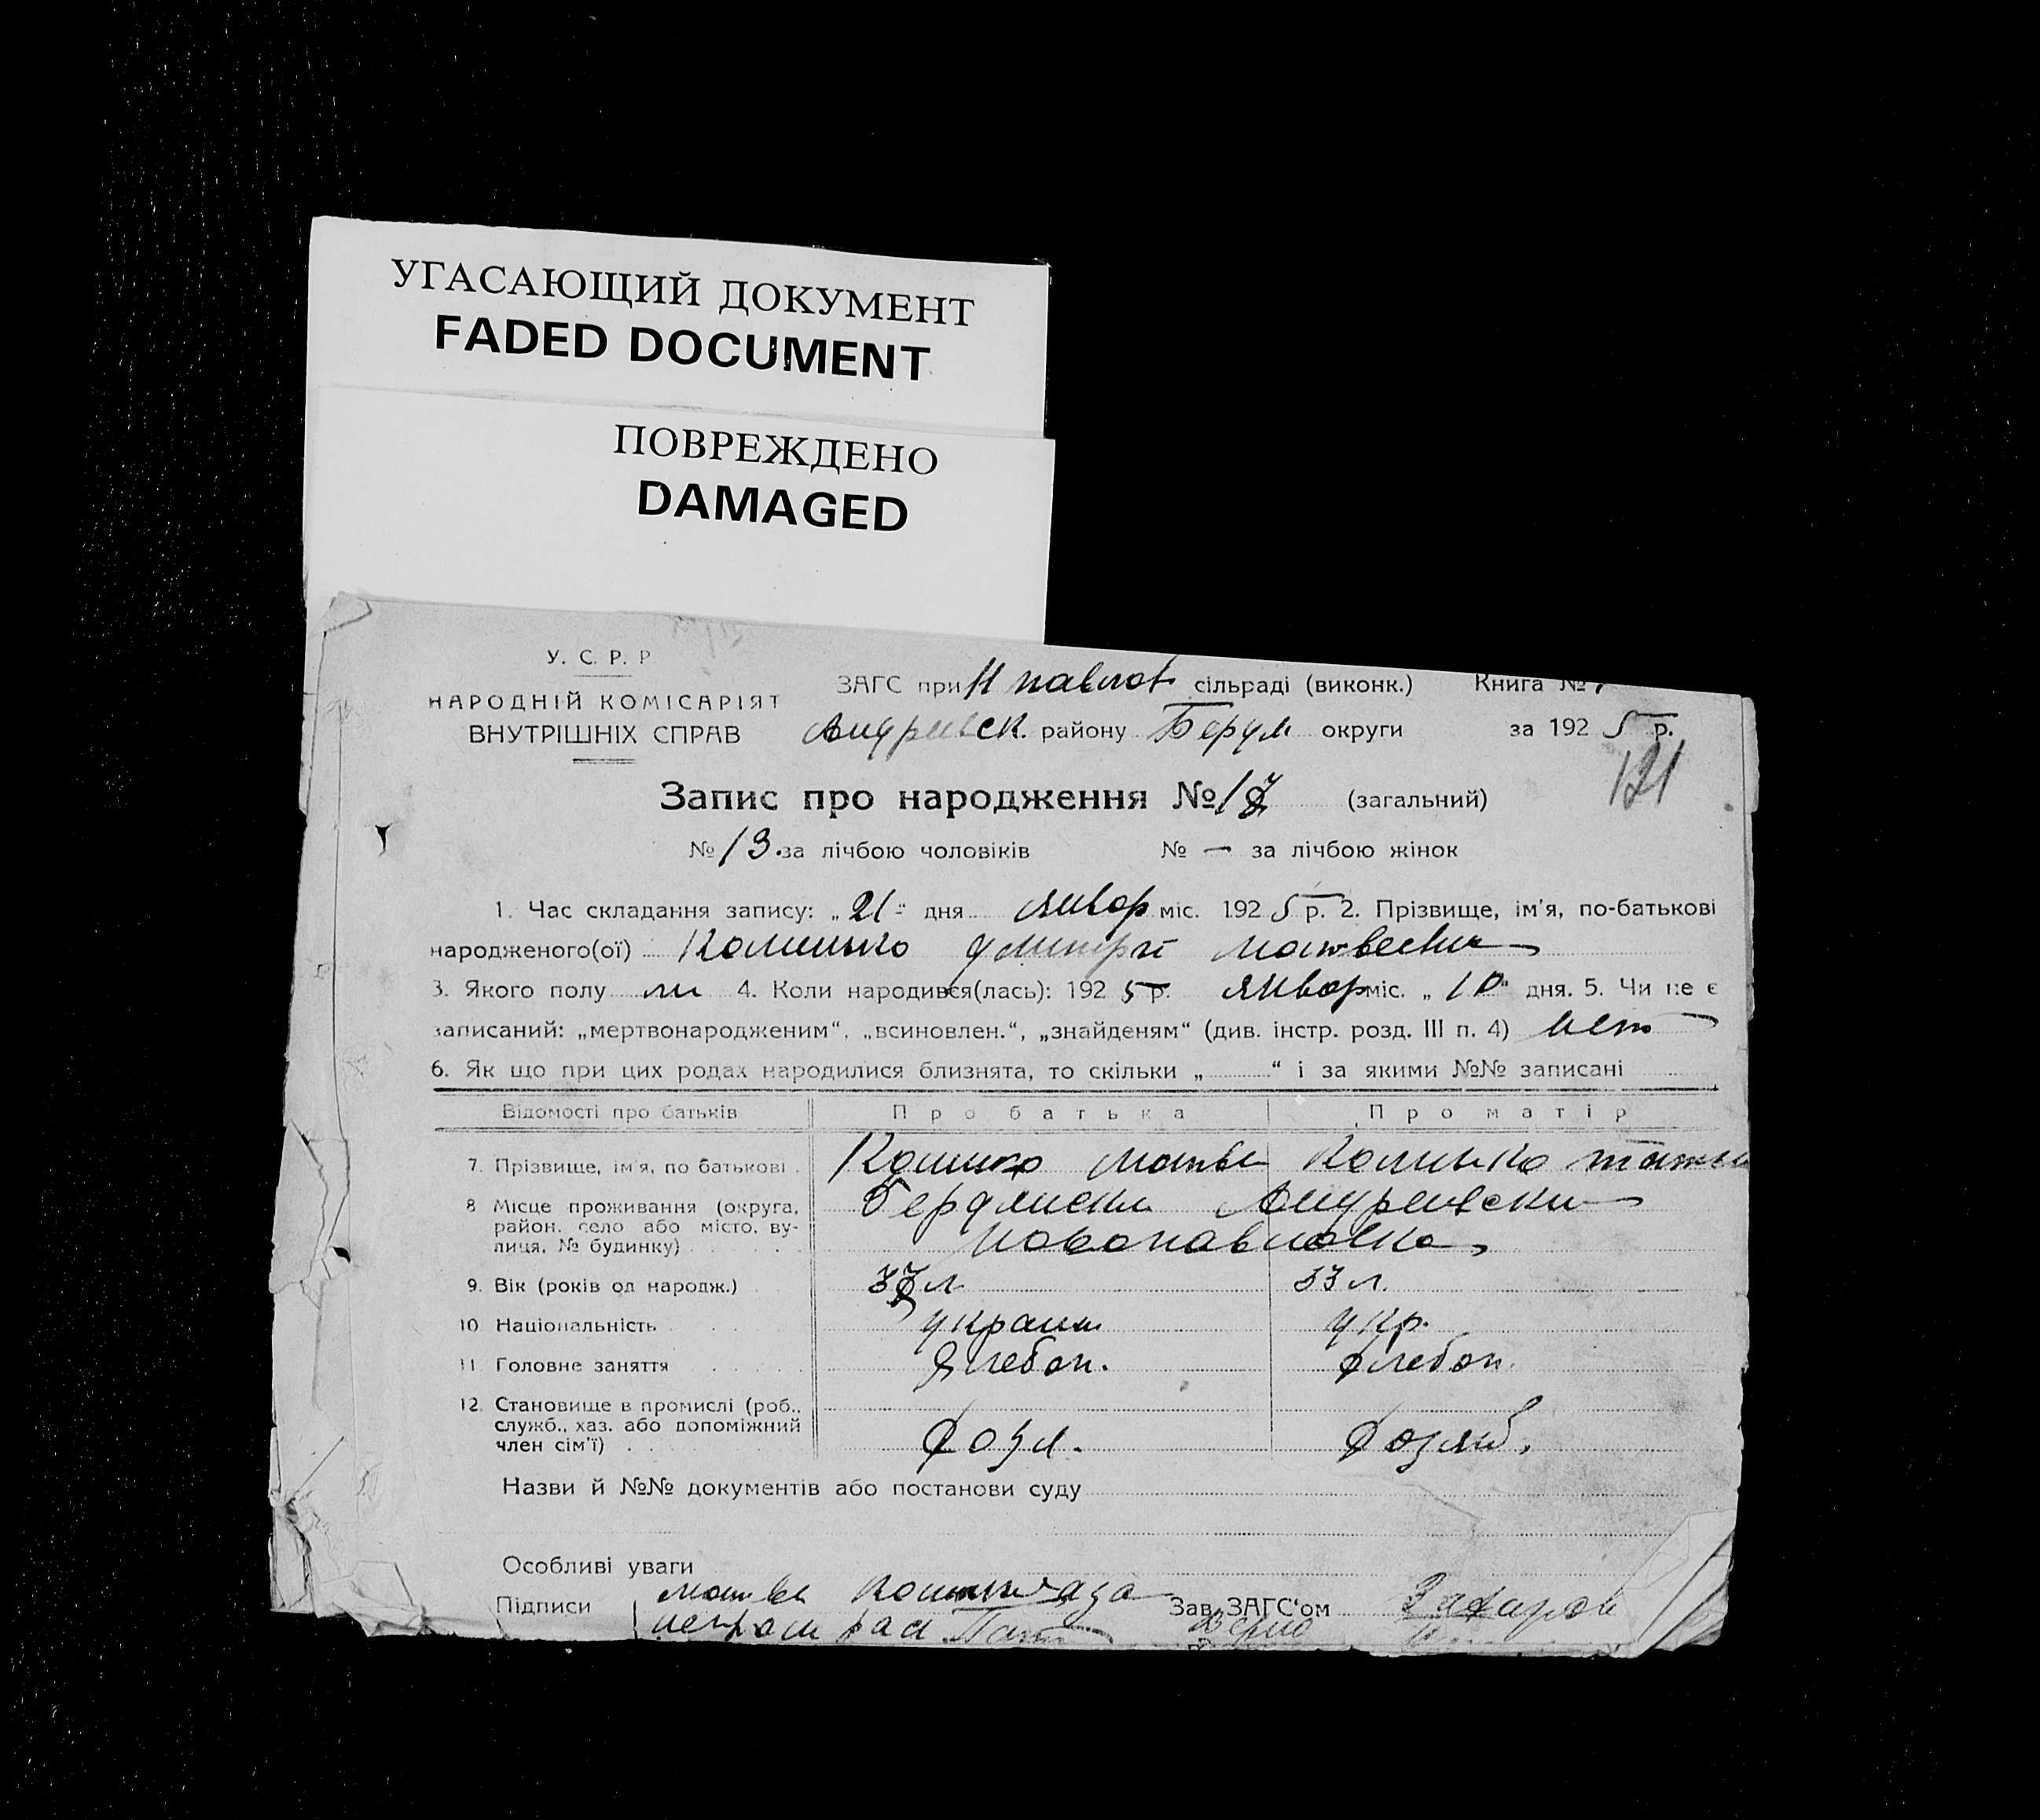 УГАСАЮЩИЙ ДОКУМЕНТ
FADED DOCUMENT
ПОВРЕЖДЕНО
DAMAGED
У. С. Р. Р
НАРОДНІЙ КОМІСАРІЯТ
ВНУТРІШНІХ СПРАВ
ЗАГС при Н павлов сільраді (виконк.) Книга №
Андриевск. району Бердм округи за 1925 р.
121
Запис про народження №17 (загальний)
№ 13. за лічбою чоловіків № — за лічбою жінок
1. Час складання запису: „21“ дня январ міс. 1925 р. 2. Прізвище, ім'я, по-батькові
народженого(ої) Дмитрй Матвеевич
3. Якого полу м 4. Коли народився(лась): 1925 р. январ міс. „10“ дня. 5. Чи не є
записаний: „мертвонародженим“, „всиновлен.“, „знайденям“ (див. інстр. розд. III п. 4) нет
6. Як що при цих родах народилися близнята, то скільки „ “ і за якими №№ записані
Відомості про батьків Про батька Про матір
7. Прізвище, ім'я, по батькові Матве
8 Місце проживання (округа, район, село або місто, вулиця, № будинку) Бердянски Андреевски
Новопавловка
9. Вік (років од народж.) 37 л 33 л.
10 Національність украин укр.
11 Головне заняття хлебоп. хлебоп.
12. Становище в промислі (роб., служб., хаз. або допоміжний член сім'ї) хозя. хозяй.
Назви й №№ документів або постанови суду
Особливі уваги
Підписи Матве за Зав. ЗАГС'ом Захаров